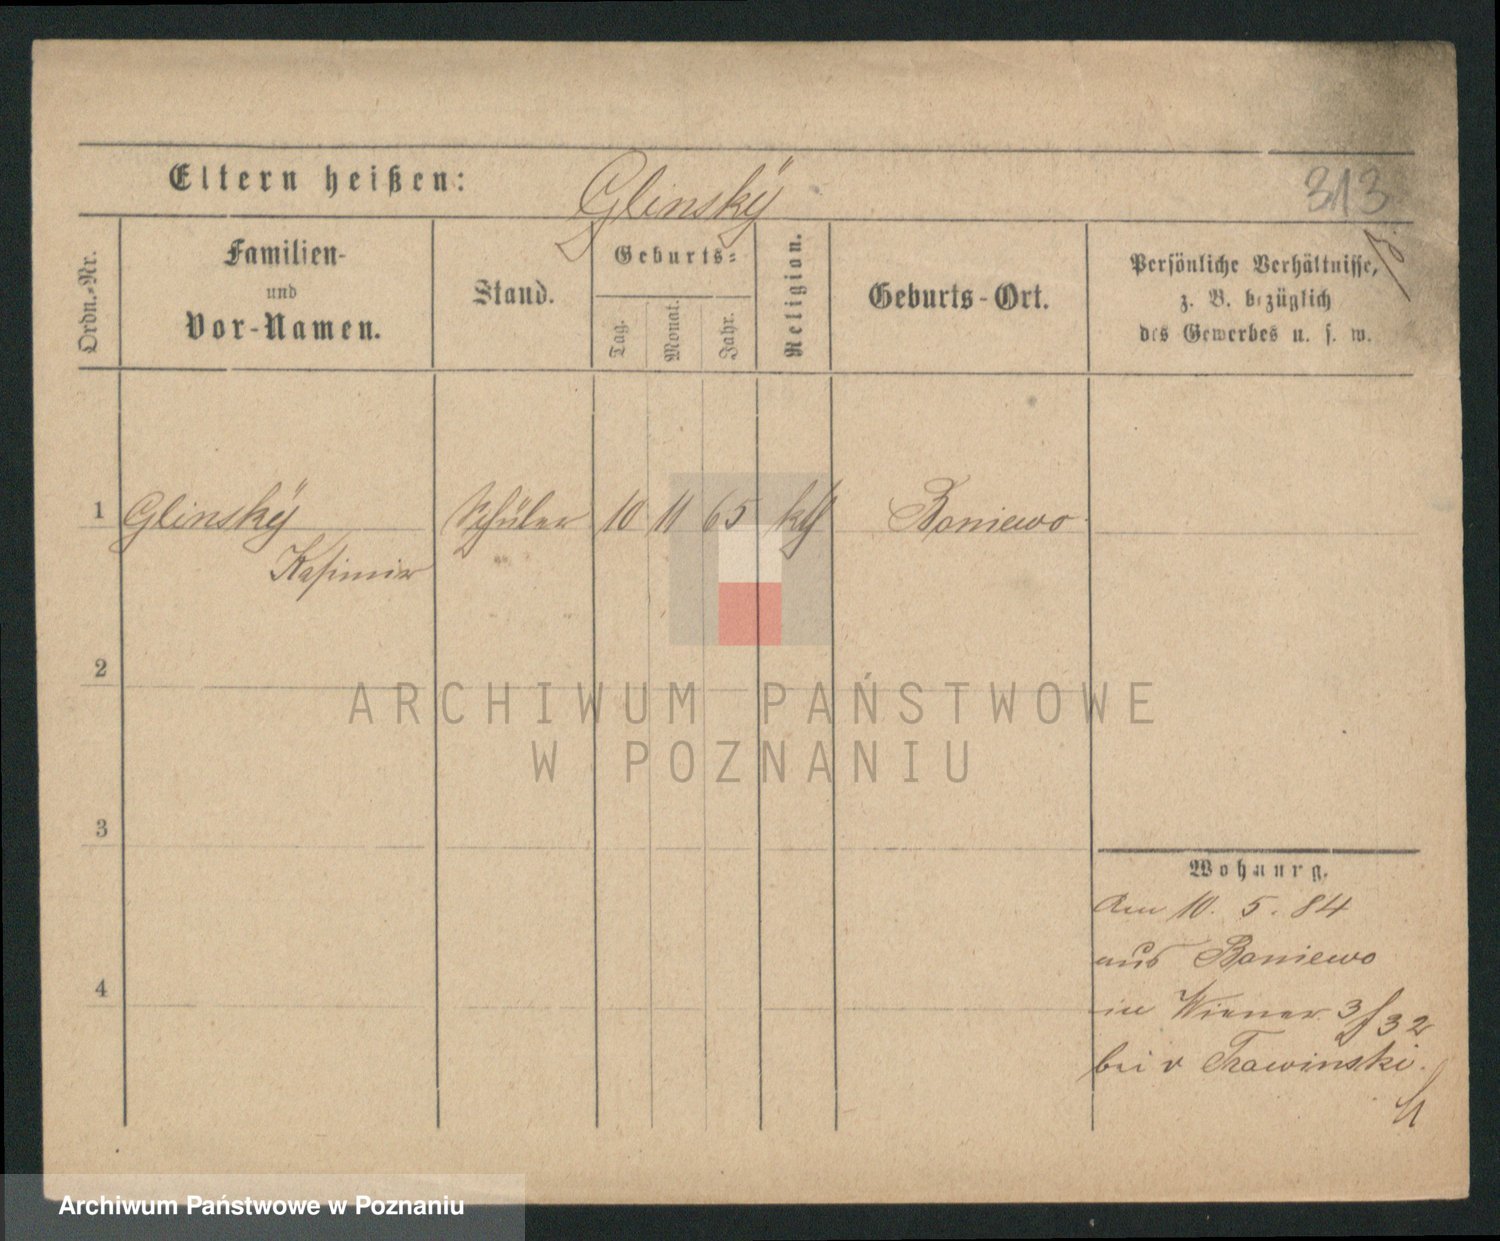 Eltern heißen: Glinský
313
Ordn.-Nr.
Familien-
und
Vor-Namen.
Stand.
Geburts-
Tag.
Monat.
Jahr.
Religion.
Geburts-Ort.
Persönliche Verhältnisse,
z. B. bezüglich
des Gewerbes u. s. w.
1 Glinský Schüler 10 11 65 kth Boniewo
Kasimir
2
3
4
Wohnung.
Am 10. 5. 84
aus Boniewo
in Wiener 3/32
bei v Trawinski.
ARCHIWUM PAŃSTWOWE
W POZNANIU
Archiwum Państwowe w Poznaniu